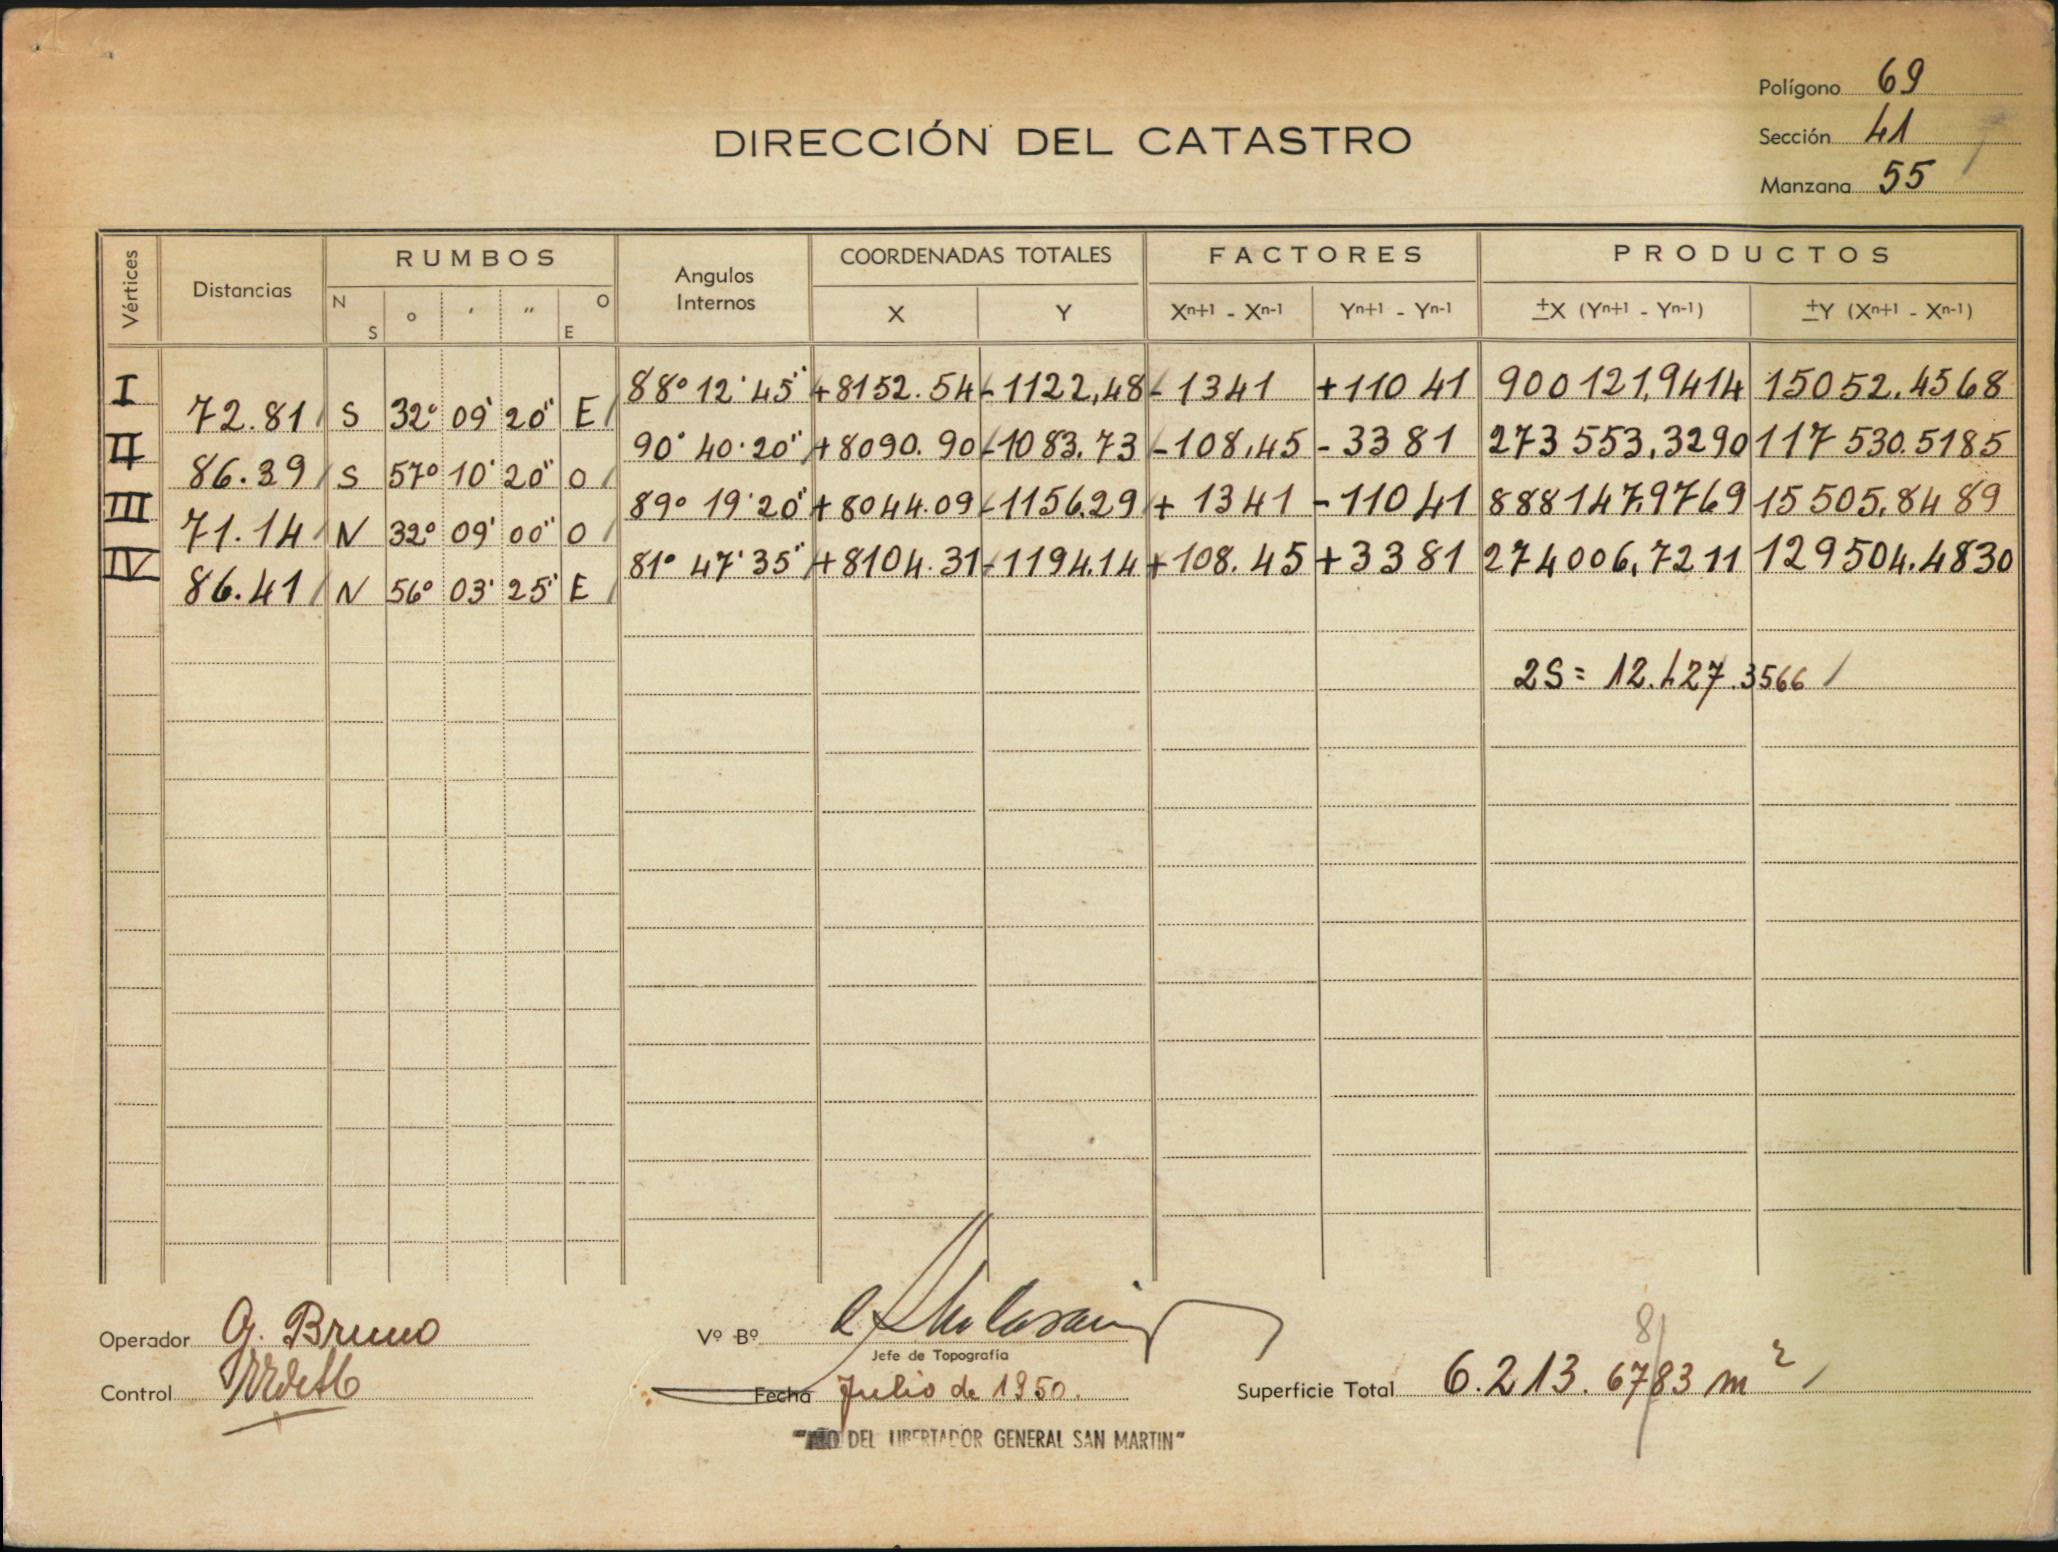 Polígono 69
Sección 41
Manzana 55
DIRECCIÓN DEL CATASTRO
Vértices Distancias RUMBOS N S ° ' " O E Angulos Internos COORDENADAS TOTALES X Y FACTORES Xn+1 - Xn-1 Yn+1 - Yn-1 PRODUCTOS ±X (Yn+1 - Yn-1) ±Y (Xn+1 - Xn-1)
I 88° 12' 45" +8152.54 -1122,48 -1341 +110 41 900 121,9414 15052.4568
72.81 S 32° 09' 20" E
II 90° 40' 20" +8090.90 -1083.73 -108,45 -3381 273 553,3290 117 530.5185
86.39 S 57° 10' 20" O
III 89° 19' 20" +8044.09 -1156.29 +1341 -110 41 888 147,9769 15 505,8489
71.14 N 32° 09' 00" O
IV 81° 47' 35" +8104.31 -1194.14 +108.45 +3381 274 006,7211 129504.4830
86.41 N 56° 03' 25" E
2S = 12.427.3566
Operador G. Bruno
Control
Vº Bº
Jefe de Topografía
Fecha Julio de 1950.
"AÑO DEL LIBERTADOR GENERAL SAN MARTIN"
8
Superficie Total 6.213.6783 m²